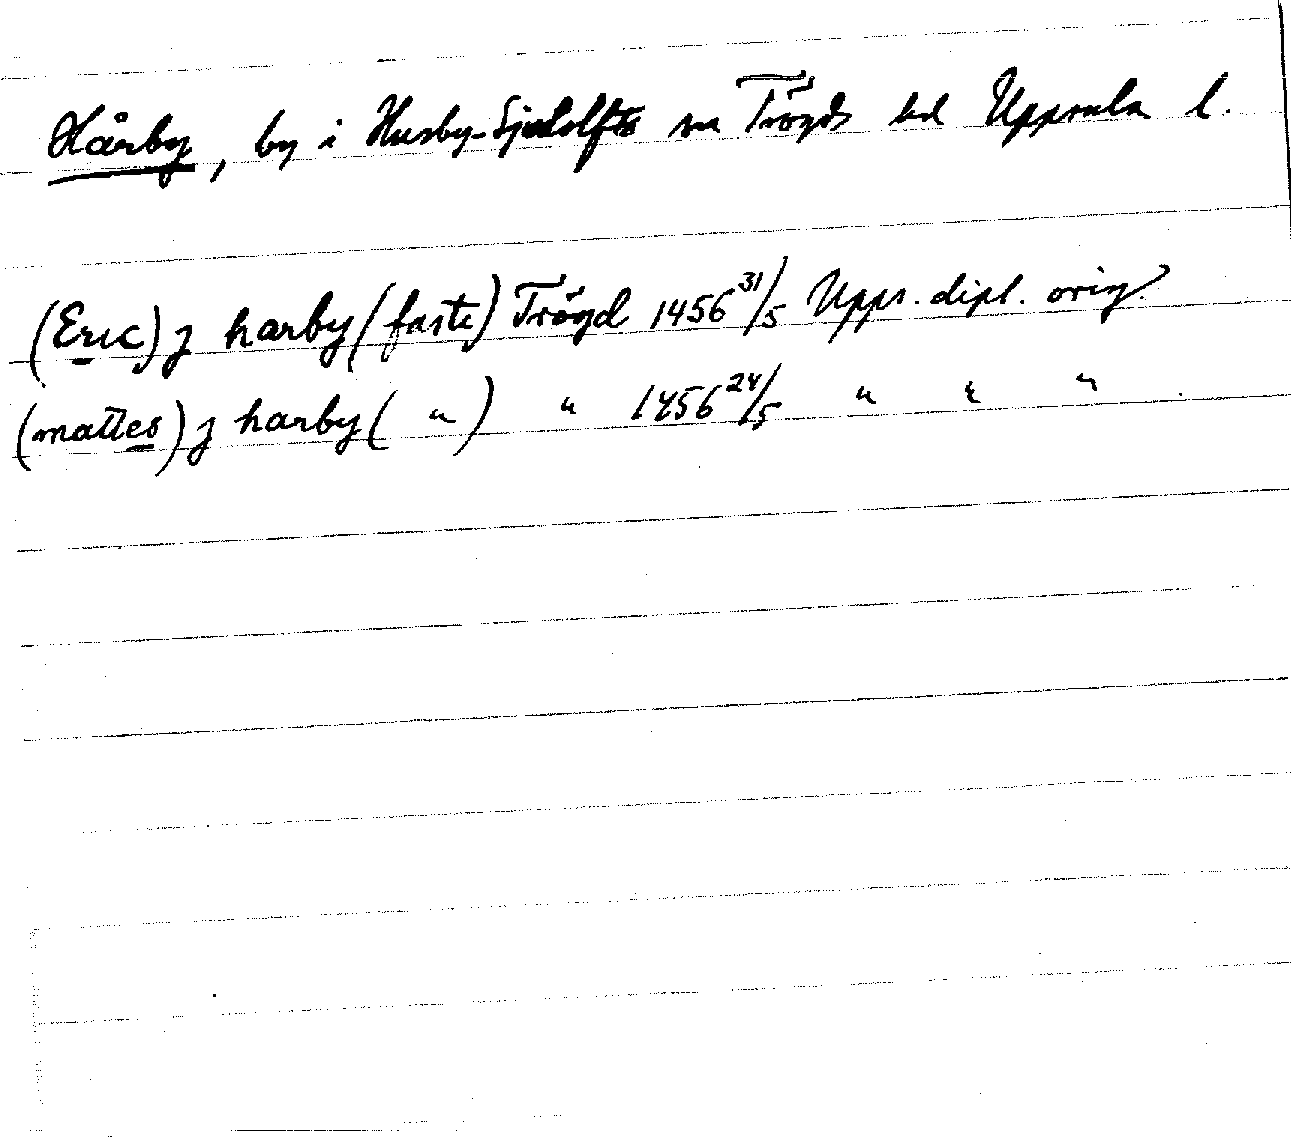 Hårby, by i Husby-Sjutolfts sn Trögds hd Uppsala l.
(Eric) j harby (faste) Trögd 1456 31/5 Upps. dipl. orig.
(mattes) j harby ( " ) " 1456 24/5 " " " .